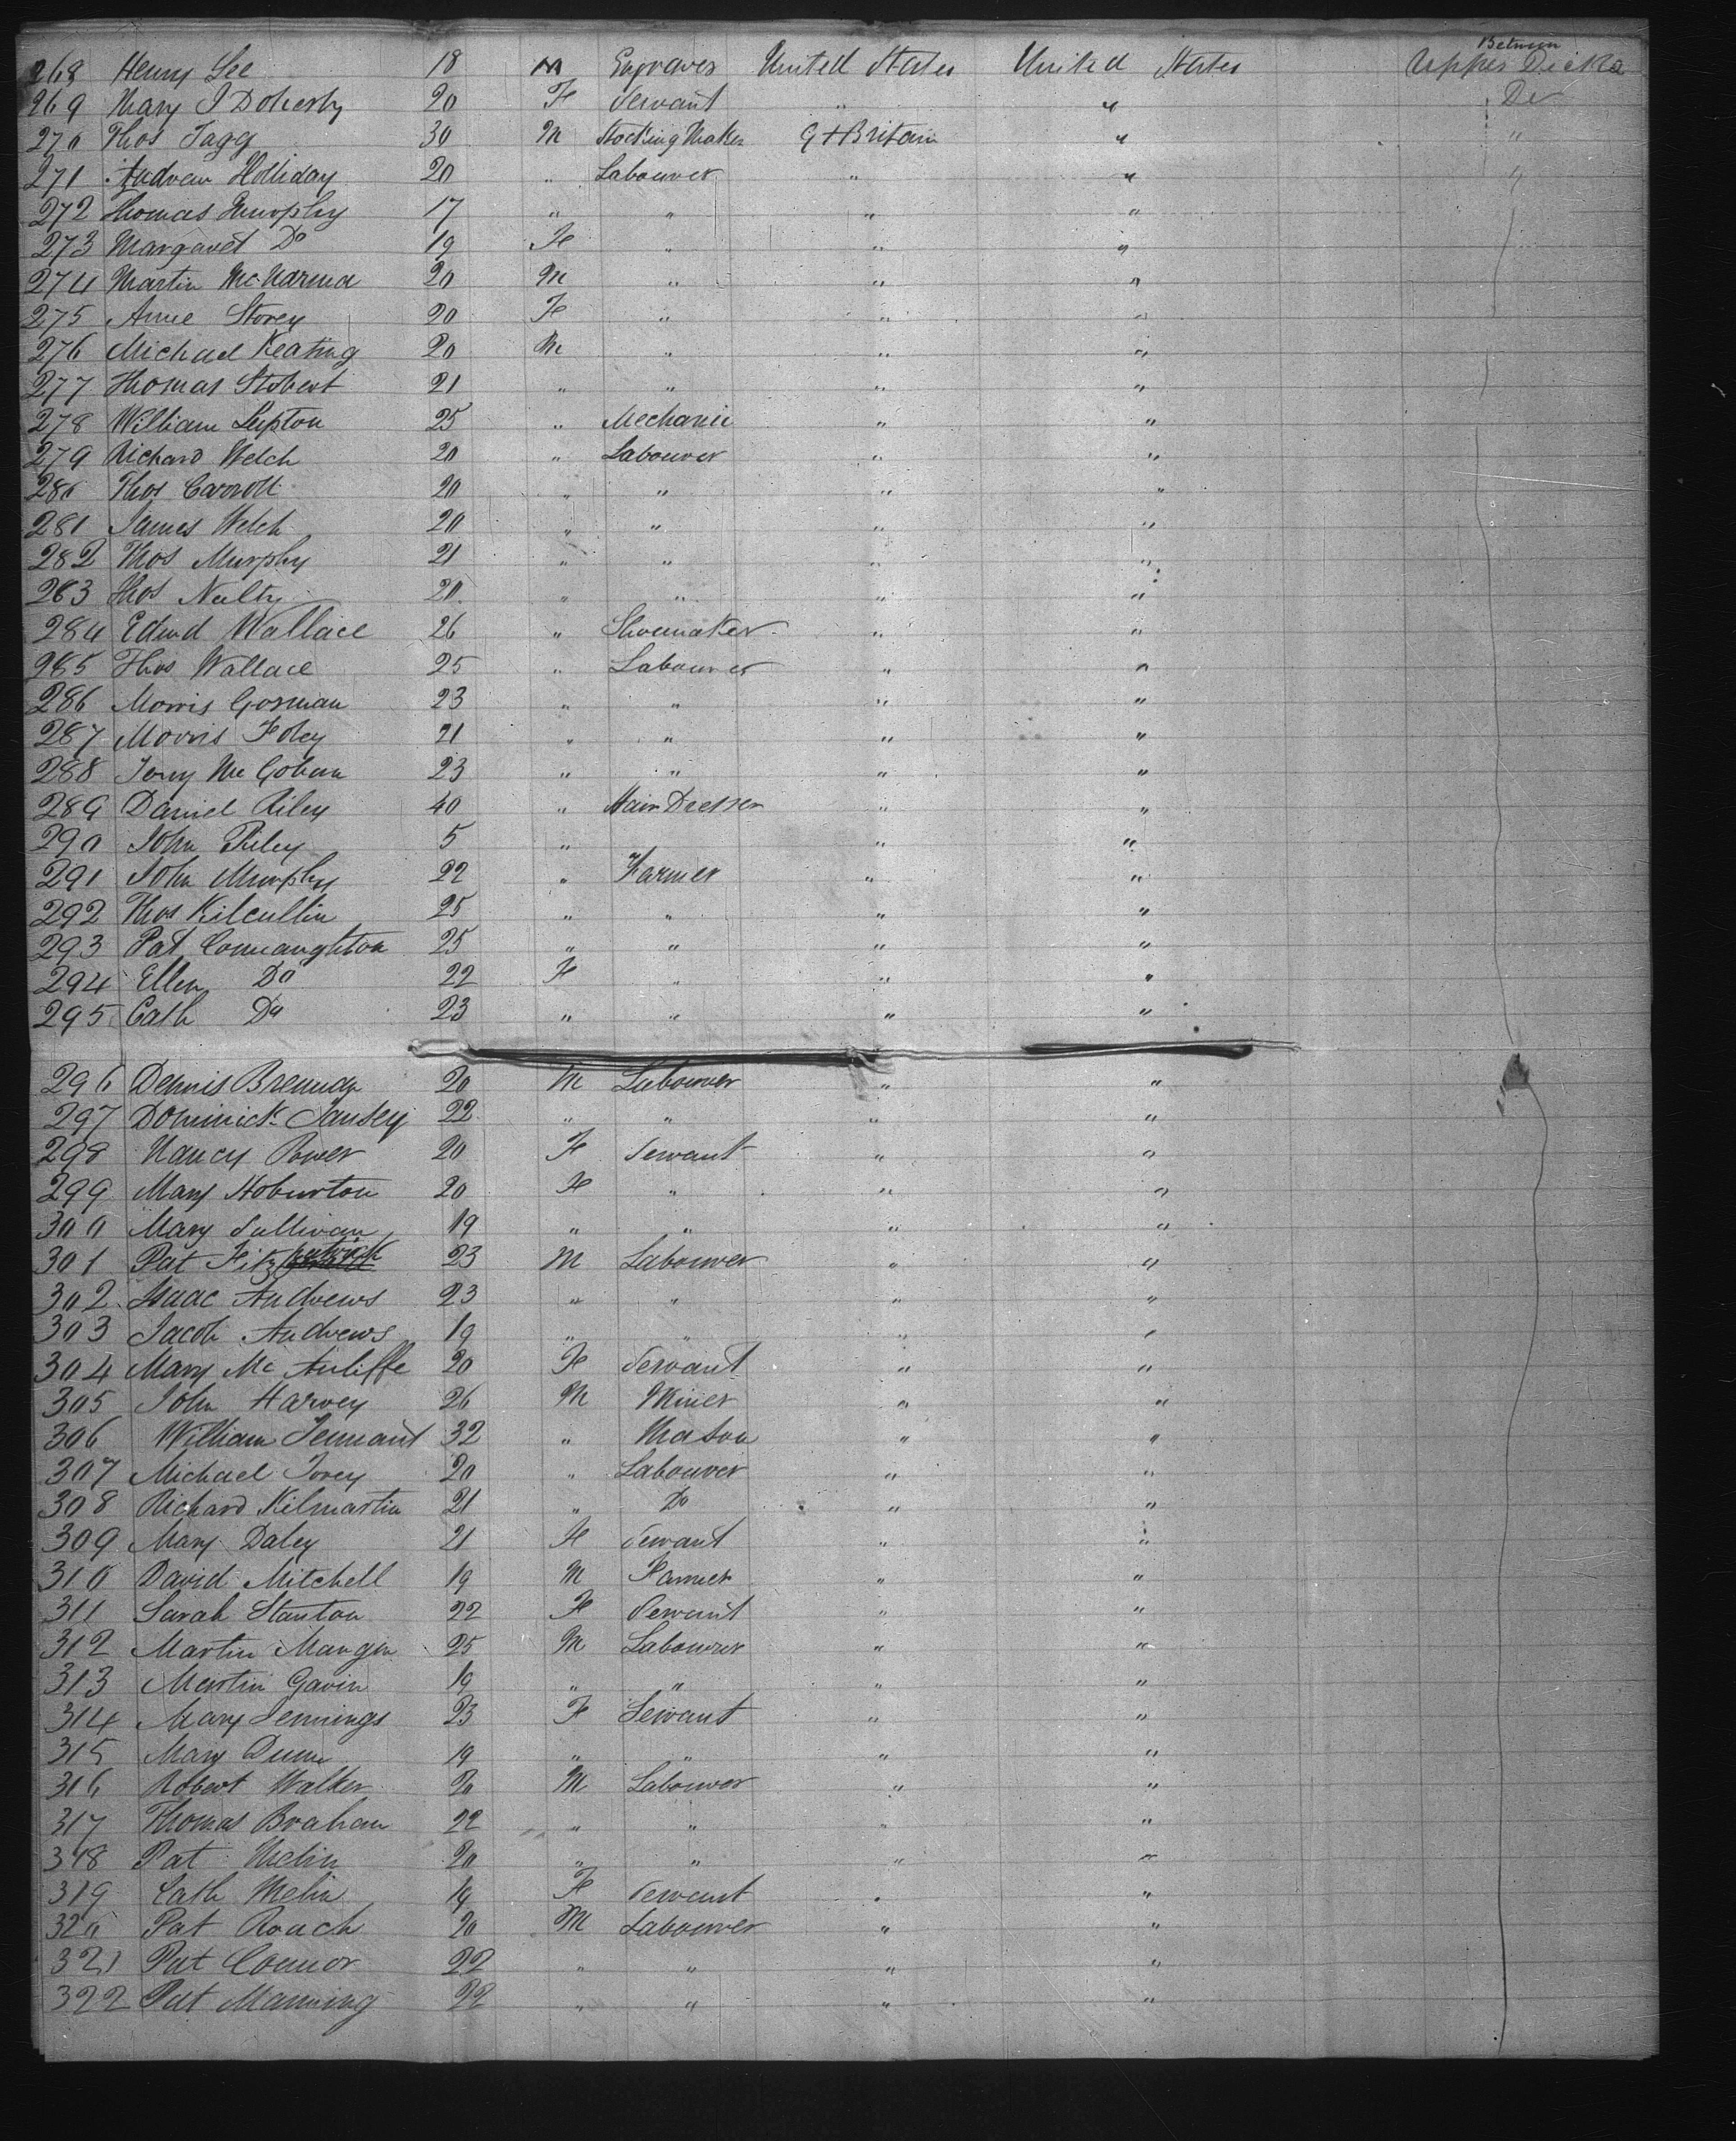 Between
268 Henry Lee 18 M Engraver United States United States Upper Decks
269 Mary J Doherty 20 F Servant " " Do
270 Thos Tagg 30 M Stocking Maker Gt Britain " "
271 Andrew Holliday 20 " Labourer " " "
272 Thomas Murphy 17 " " " "
273 Margaret Do 19 F " " "
274 Martin 20 M " " "
275 Anne Storey 20 F " " "
276 Michael Keating 20 M " " "
277 Thomas Stobert 21 " " " "
278 William Lupton 25 " Mechanic " "
279 Richard Welch 20 " Labourer " "
280 Thos Carroll 20 " " " "
281 James Welch 20 " " " "
282 Thos Murphy 21 " " " "
283 Thos Nulty 20 " " " "
284 Edwd Wallace 26 " Shoemaker " "
285 Thos Wallace 25 " Labourer " "
286 Morris Gorman 23 " " " "
287 Morris Foley 21 " " " "
288 Terry Mc Gohan 23 " " " "
289 Daniel Riley 40 " Hair Dresser " "
290 John Riley 5 " " "
291 John Murphy 22 " Farmer " "
292 Thos Kilcullin 25 " " " "
293 Pat Connaughton 25 " " " "
294 Ellen Do 22 F " " "
295 Cath Do 23 " " " "
296 Dennis Brennan 20 M Labourer " "
297 Dominick 22 " " " "
298 Nancy Power 20 F Servant " "
299 Mary Hoburton 20 F " " "
300 Mary Sullivan 19 " " " "
301 Pat Fitzpatrick 23 M Labourer " "
302 Isaac Andrews 23 " " " "
303 Jacob Andrews 19 " " " "
304 Mary Mc Auliffe 20 F Servant " "
305 John Harvey 26 M Miner " "
306 William Tennant 32 " Mason " "
307 Michael 20 " Labourer " "
308 Richard Kilmartin 21 " Do " "
309 Mary Daley 21 F Servant " "
310 David Mitchell 19 M Farmer " "
311 Sarah Stanton 22 F Servant " "
312 Martin Mangin 25 M Labourer " "
313 Martin Gavin 19 " " " "
314 Mary Jennings 23 F Servant " "
315 Mary Dunn 19 " " " "
316 Robert Walker 20 M Labourer " "
317 Thomas Brahan 22 " " " "
318 Pat Melin 20 " " " "
319 Cath Melin 19 F Servant " "
320 Pat Roach 20 M Labourer " "
321 Pat Connor 22 " " " "
322 Pat Manning 22 " " " "